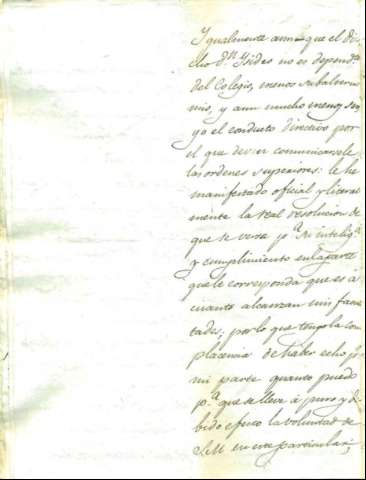 Ygualmente aunque el di
cho Dn. Ysidro no es dependte.
del Colegio, menos subalterno
mio, y aun mucho menos ser
yo el conducto directivo por
el que deven comunicarsele
las ordenes superiores: le he
manifestado oficial y literal
mente la real resolucion de
que se versa pa. su inteliga.
y cumplimiento en la parte
que le corresponda que es á
cuanto alcanzan mis facul
tades; por lo que tengo la com
placencia de haber echo pr.
mi parte quanto puedo
pa. que se lleve á puro y de
bido efecto la voluntad de
S. M. en este particular;